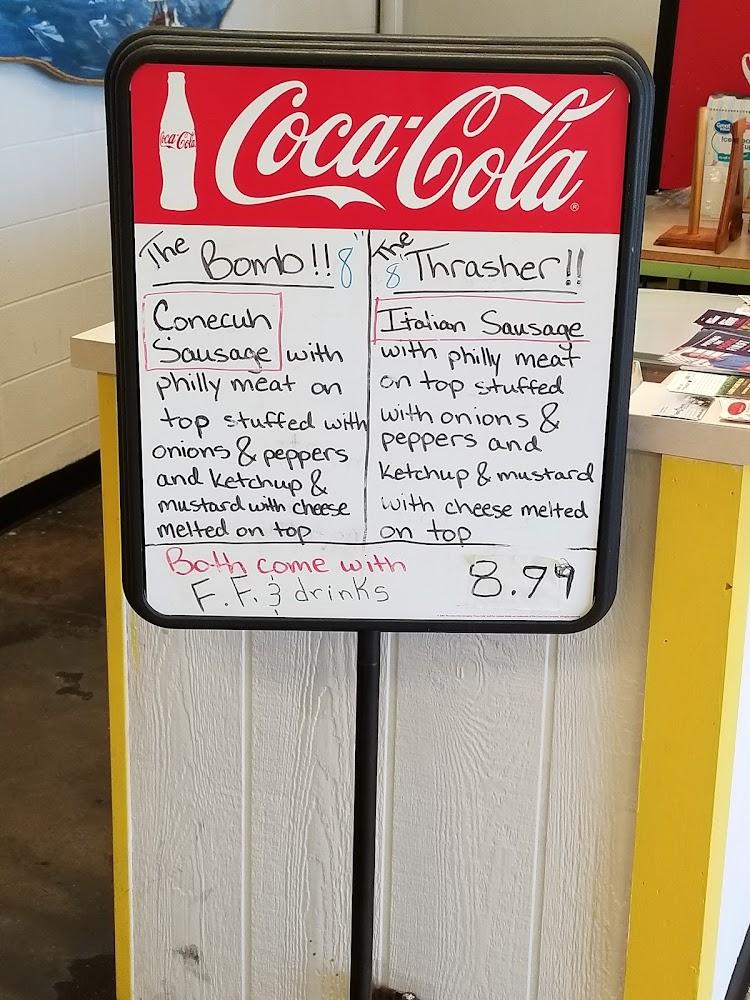 Coca-Cola
Coca-Cola®
The Bomb!! 8"
Conecuh
Sausage with
philly meat on
top stuffed with
onions & peppers
and ketchup &
mustard with cheese
melted on top
The 8" Thrasher!!
Italian Sausage
with philly meat
on top stuffed
with onions &
peppers and
ketchup & mustard
with cheese melted
on top
Both come with
F.F. & drinks
8.79
Great Value